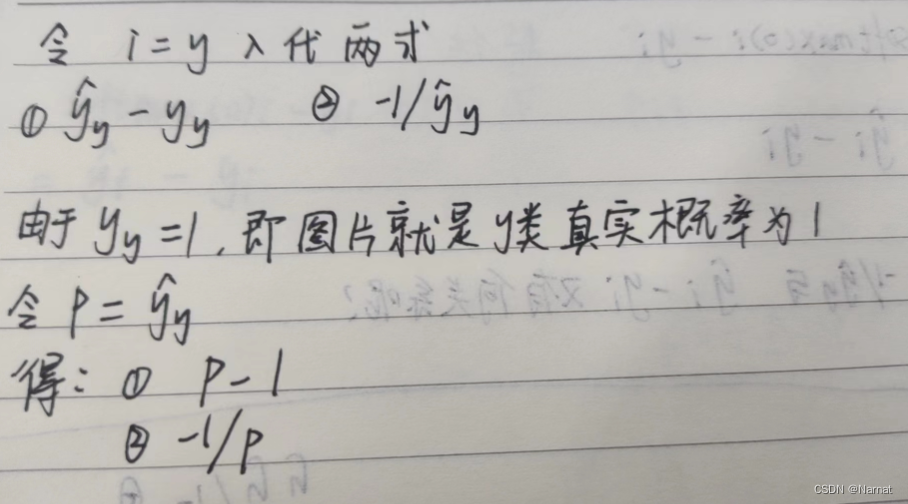 令 i = y 入代两式
① ŷy − yy ② -1/ŷy
由于 yy = 1, 即图片就是y类真实概率为1
令 P = ŷy
得: ① P − 1
② -1/p
CSDN @Narnat